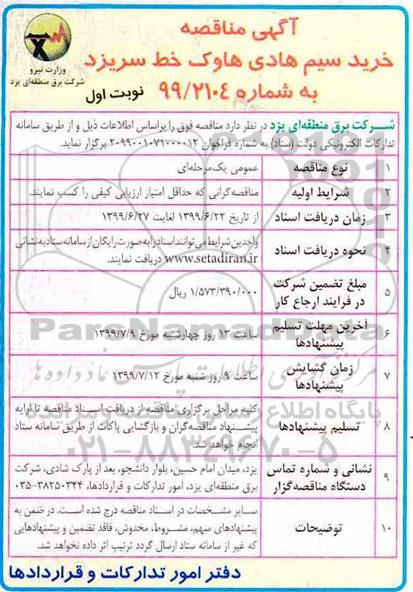 آگهی مناقصه
خرید سیم هادی هاوک خط سریزد
به شماره ۹۹/۲۱۰۴
نوبت اول
وزارت نیرو
شرکت برق منطقه‌ای یزد
شرکت برق منطقه‌ای یزد در نظر دارد مناقصه فوق را براساس اطلاعات ذیل و از طریق سامانه
تدارکات الکترونیکی دولت (ستاد) به شماره فراخوان ۲۰۹۹۰۰۱۰۷۱۰۰۰۰۱۲ برگزار نماید.
۱ نوع مناقصه عمومی یک‌مرحله‌ای
۲ شرایط اولیه مناقصه‌گرانی که حداقل امتیاز ارزیابی کیفی را کسب نمایند.
۳ زمان دریافت اسناد از تاریخ ۱۳۹۹/۶/۲۲ لغایت ۱۳۹۹/۶/۲۷
۴ نحوه دریافت اسناد واجدین شرایط می‌توانند اسناد را به صورت رایگان از سامانه ستاد به نشانی
www.setadiran.ir دریافت نمایند.
۵ مبلغ تضمین شرکت
در فرایند ارجاع کار ۱/۵۷۳/۳۹۰/۰۰۰ ریال
۶ آخرین مهلت تسلیم
پیشنهادها ساعت ۱۳ روز چهارشنبه مورخ ۱۳۹۹/۷/۹
۷ زمان گشایش
پیشنهادها ساعت ۹ روز شنبه مورخ ۱۳۹۹/۷/۱۲
۸ تسلیم پیشنهادها کلیه مراحل برگزاری مناقصه از دریافت اسناد مناقصه تا ارایه
پیشنهاد مناقصه‌گران و بازگشایی پاکات از طریق سامانه ستاد
انجام خواهد شد.
۹ نشانی و شماره تماس
دستگاه مناقصه‌گزار یزد، میدان امام حسین، بلوار دانشجو، بعد از پارک شادی، شرکت
برق منطقه‌ای یزد، امور تدارکات و قراردادها، ۳۸۲۵۰۳۴۴-۰۳۵
۱۰ توضیحات سایر مشخصات در اسناد مناقصه درج شده است. در ضمن به
پیشنهادهای مبهم، مشروط، مخدوش، فاقد تضمین و پیشنهادهایی
که غیر از سامانه ستاد ارسال گردد ترتیب اثر داده نخواهد شد.
دفتر امور تدارکات و قراردادها
ParsNamadData
پایگاه اطلاع رسانی
۰۲۱-۸۸۳۴۹۶۷۰-۵